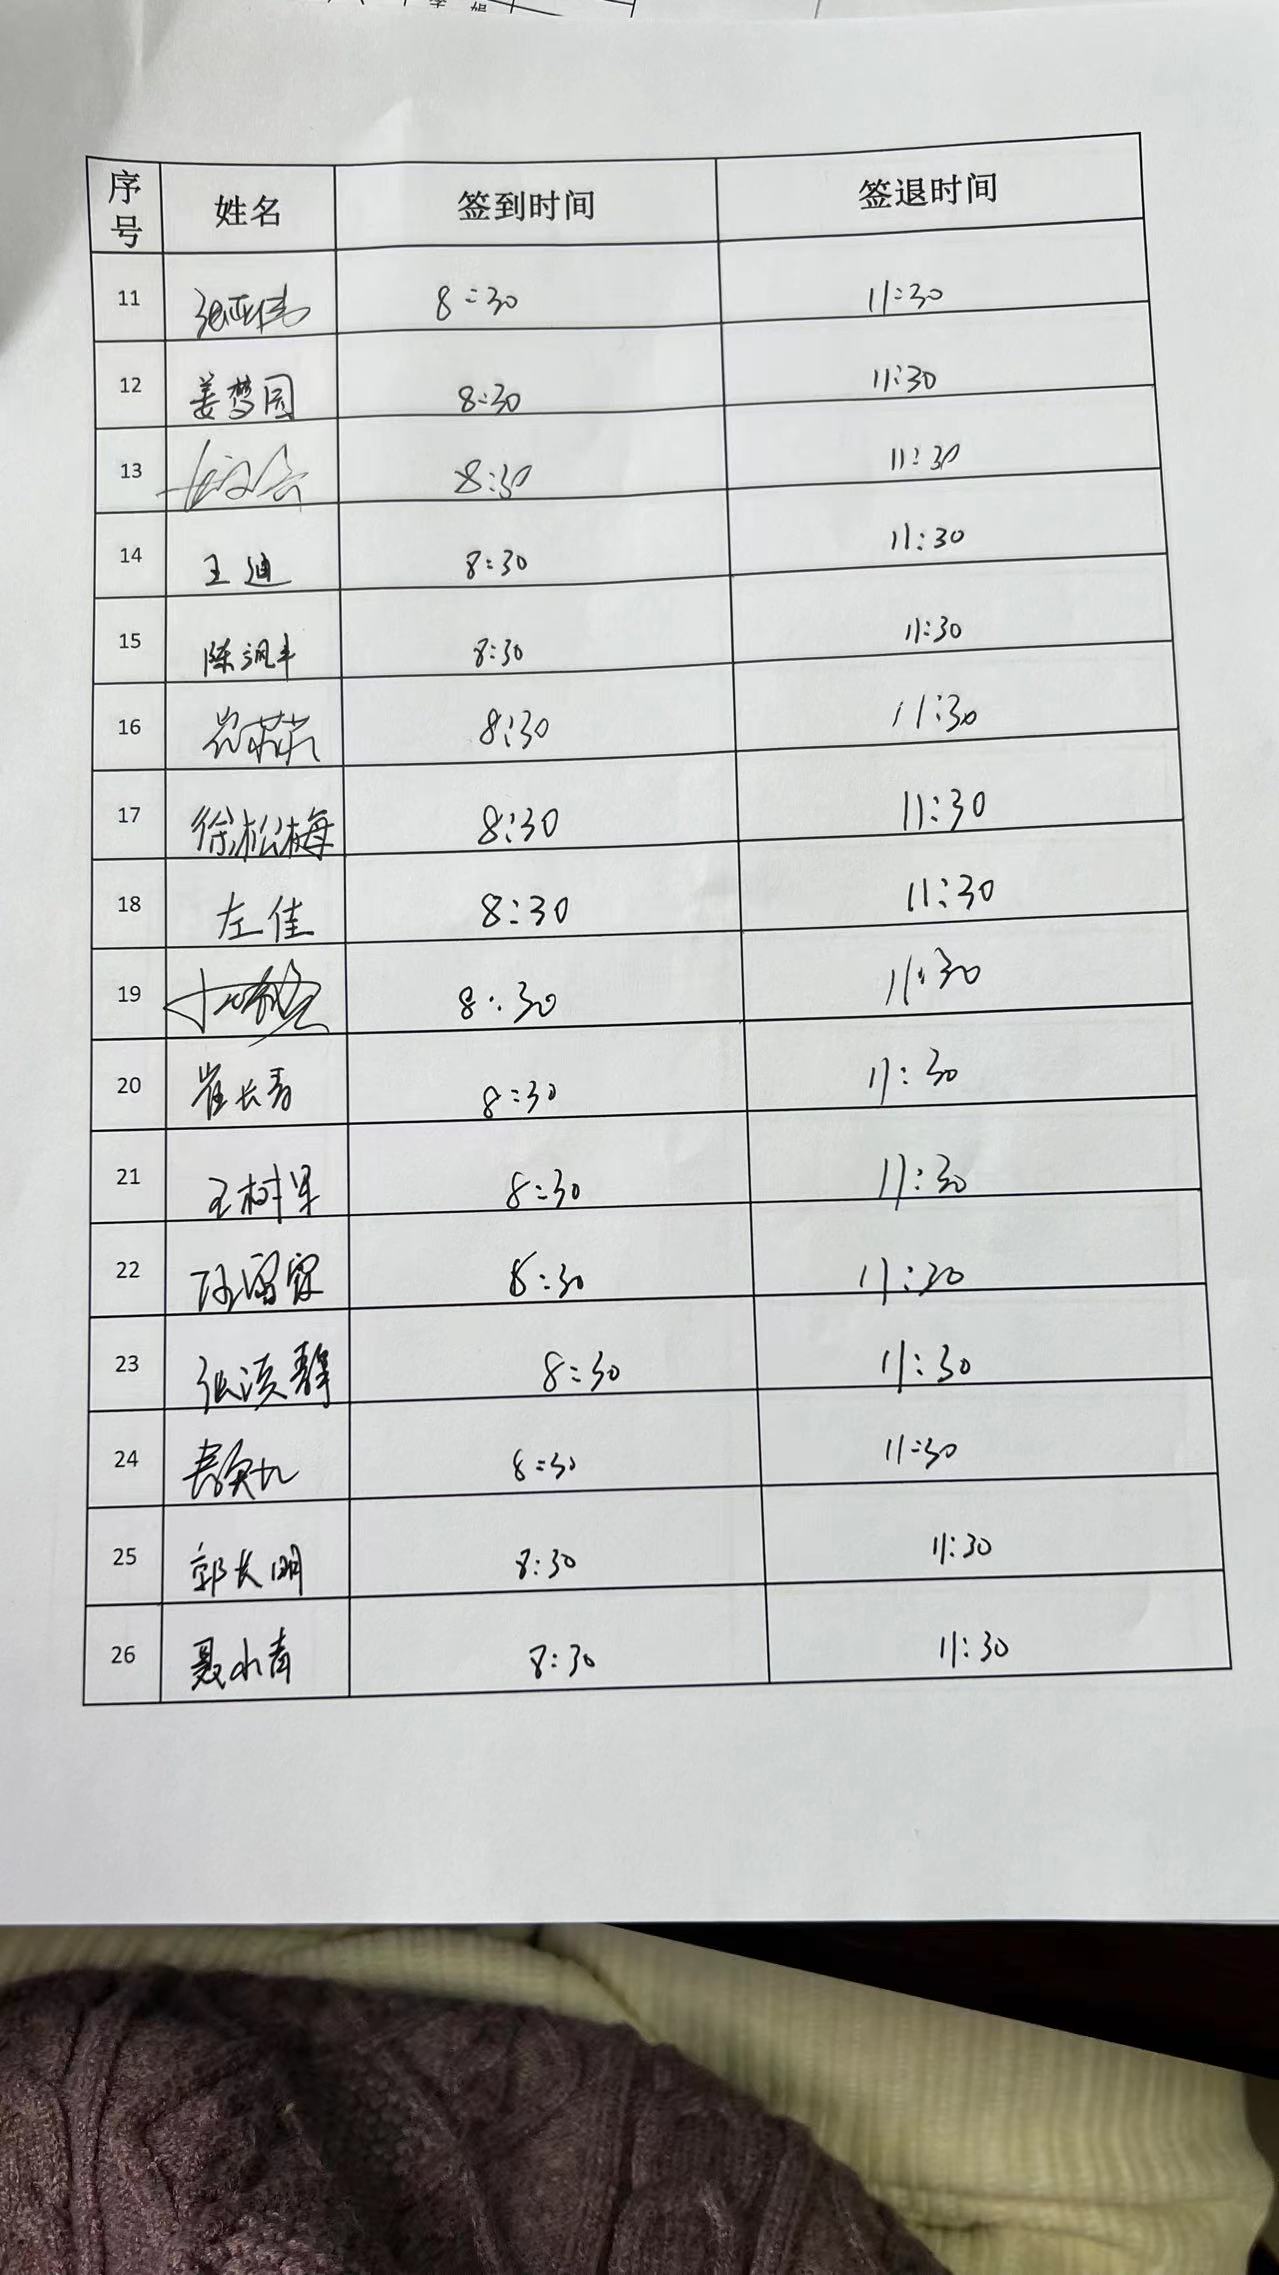 序号 姓名 签到时间 签退时间
11 张亚伟 8:30 11:30
12 姜梦园 8:30 11:30
13 8:30 11:30
14 王迪 8:30 11:30
15 陈 8:30 11:30
16 8:30 11:30
17 徐松梅 8:30 11:30
18 左佳 8:30 11:30
19 8:30 11:30
20 崔长青 8:30 11:30
21 王树军 8:30 11:30
22 8:30 11:30
23 张 静 8:30 11:30
24 8:30 11:30
25 郭长明 8:30 11:30
26 聂水青 8:30 11:30